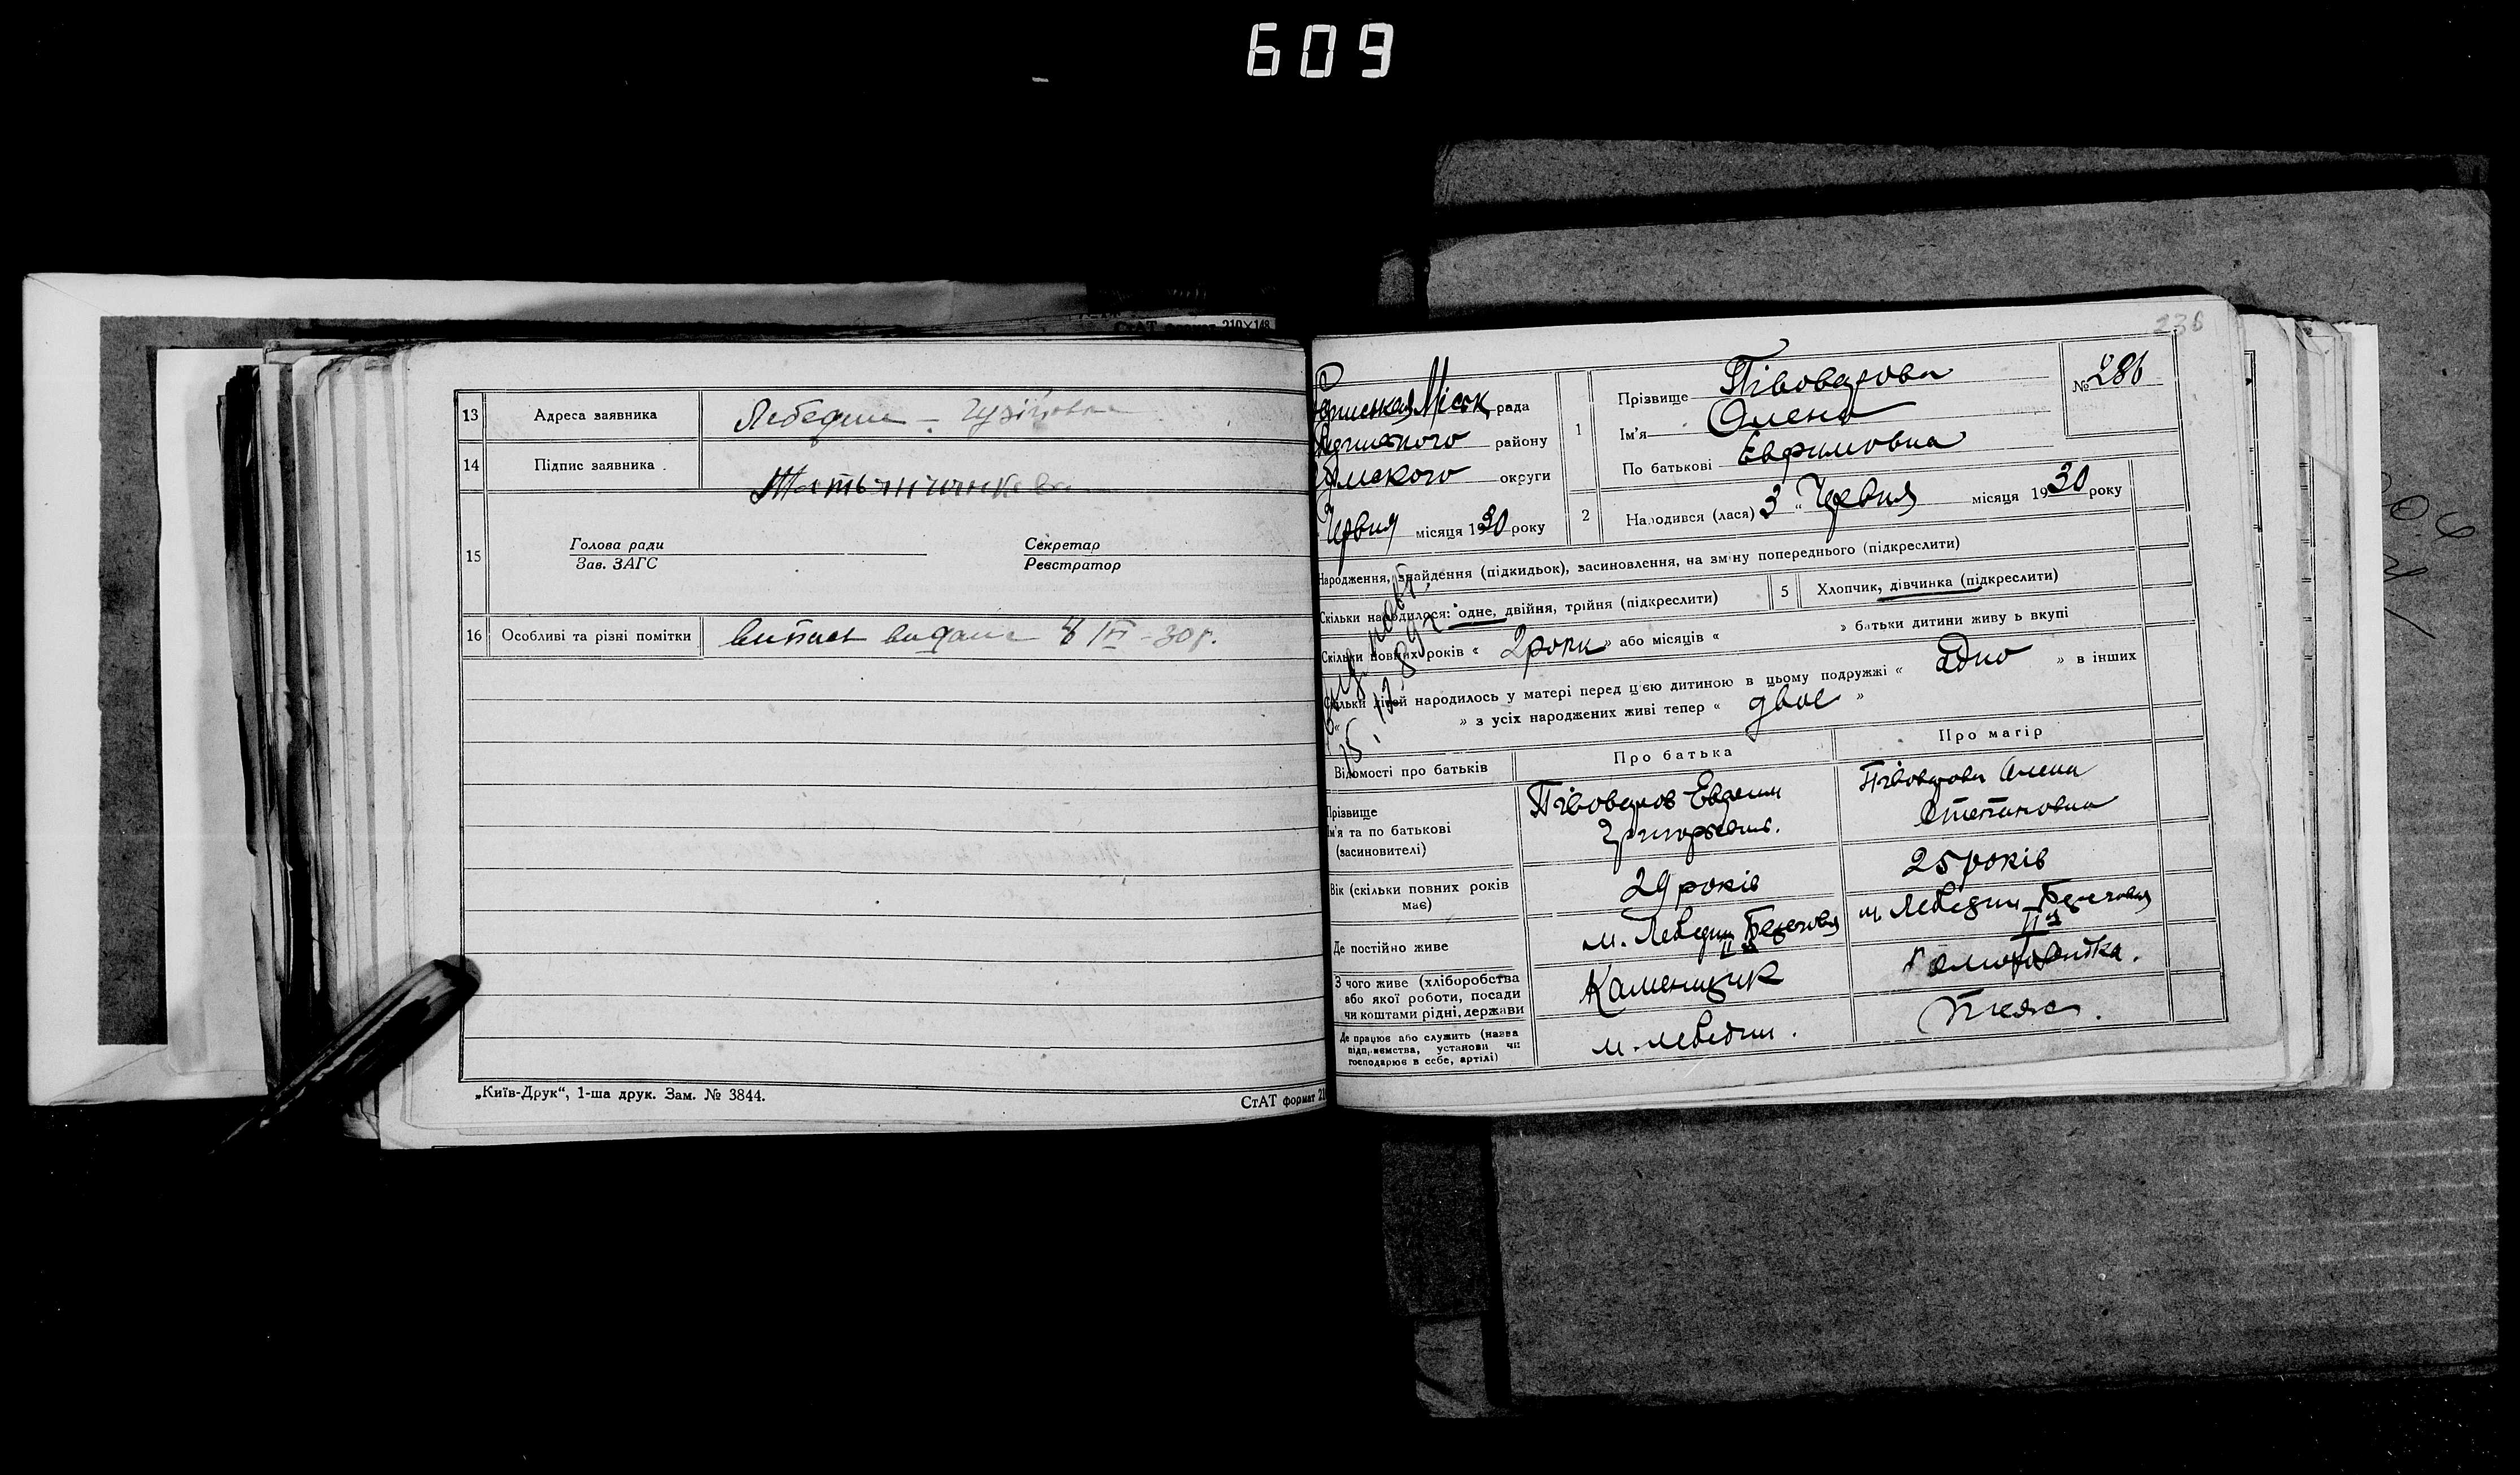 609
СтАТ формат 210×148
13 Адреса заявника Лебедин -
14 Підпис заявника
15 Голова ради Секретар
Зав. ЗАГС Реєстратор
16 Особливі та різні помітки випись видана III-30 г.
„Київ-Друк“, 1-ша друк. Зам. № 3844.
СтАТ формат 21
236
Міськ рада
району
округи
Червня місяця 1930 року
1 Прізвище Півоварова
Ім'я Олена
По батькові Евфимовна
№ 286
2 Народився (лася) 3 „ Червня місяця 1930 року
Народження, знайдення (підкидьок), засиновлення, на зміну попереднього (підкреслити)
Скільки народилося: одне, двійня, трійня (підкреслити) 5 Хлопчик, дівчинка (підкреслити)
Скільки повних років « 2 роки » або місяців « » батьки дитини живуть вкупі
Скільки дітей народилось у матері перед цією дитиною в цьому подружжі « адно » в інших
« » з усіх народжених живі тепер « двое »
15.12.89
Відомості про батьків Про батька Про матір
Прізвище
Ім'я та по батькові
(засиновителі)
Півоваров Евфим
Григорьевич.
Півоварова Олена
Степановна
Вік (скільки повних років
має)
29 років 25 років
Де постійно живе м. Лебедин м. Лебедин
З чого живе (хліборобства
або якої роботи, посади
чи коштами рідні, держави
Каменщик
Де працює або служить (назва
підприємства, установи чи
господарює в себе, артілі)
м. Лебедин.